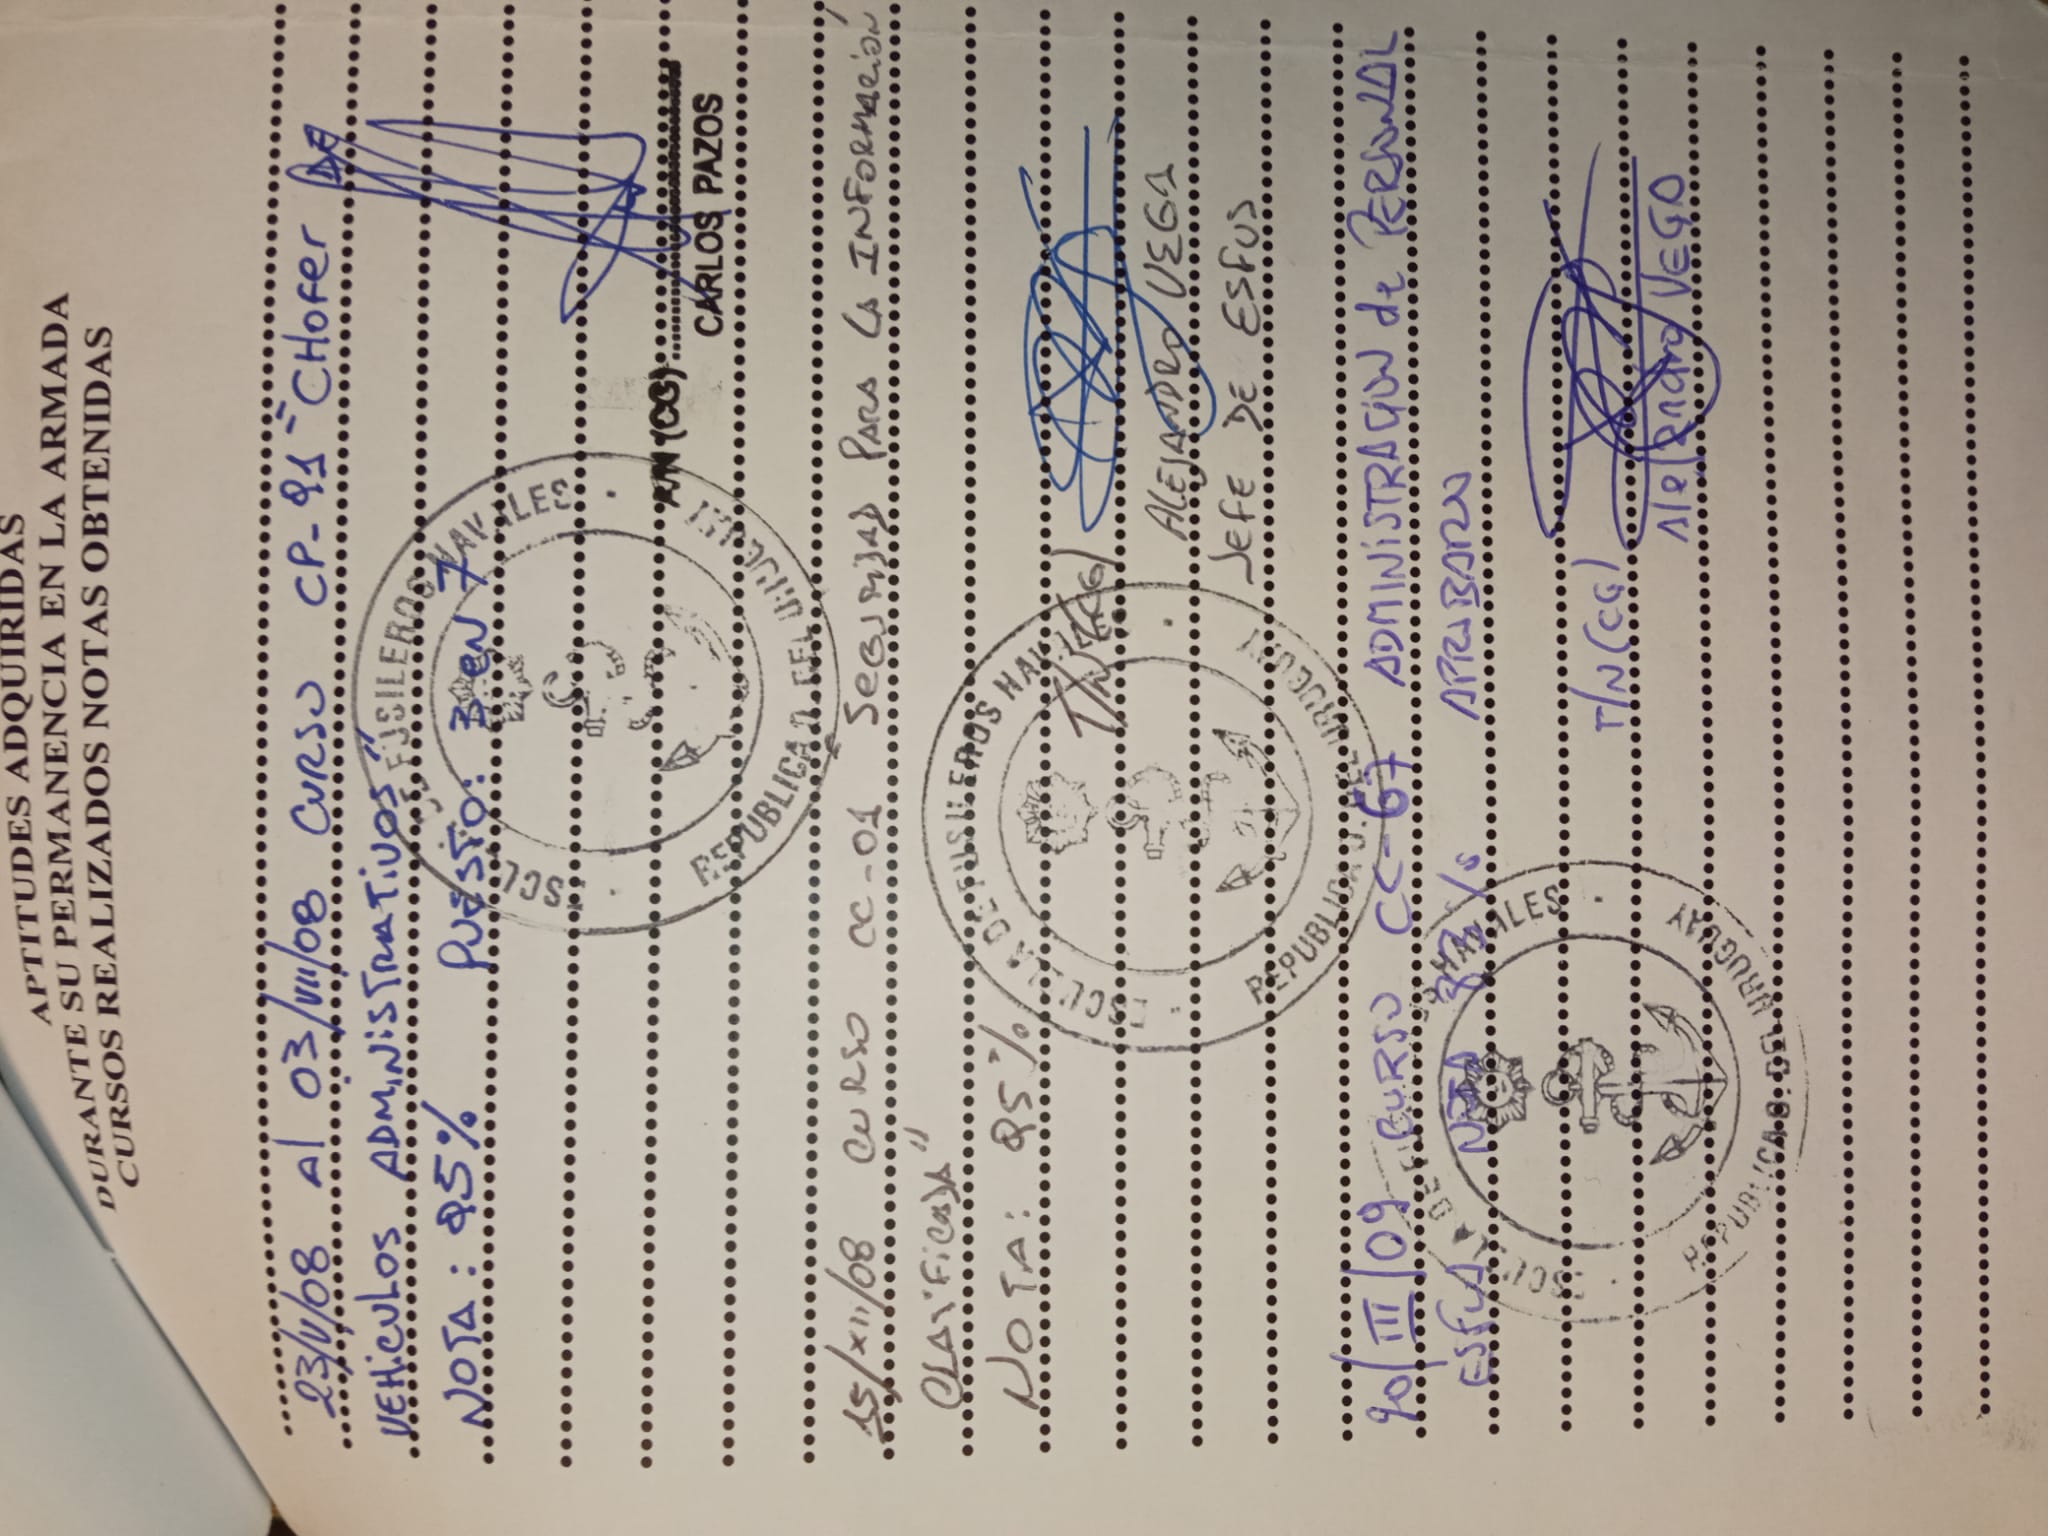 APTITUDES ADQUIRIDAS
DURANTE SU PERMANENCIA EN LA ARMADA
CURSOS REALIZADOS NOTAS OBTENIDAS
23/V/08 Al 03/VII/08 CURSO CP-91 "CHOFER DE
VEHICULOS ADMINISTRATIVOS"
NOTA: 95% PUESTO: 3 EN 7
ESCUELA DE FUSILEROS NAVALES
REPUBLICA O. DEL URUGUAY
A/N (CG)
CARLOS PAZOS
15/XII/08 CURSO CC-01 SEGURIDAD PARA LA INFORMACIÓN
CLASIFICADA"
NOTA: 95%
ESCUELA DE FUSILEROS NAVALES
REPUBLICA O. DEL URUGUAY
T/N (CG)
ALEJANDRO VEGA
JEFE DE ESFUS
/III/09 CURSO CC-67 ADMINISTRACIÓN de PERSONAL
NOTA % APROBADO
ESCUELA DE FUSILEROS NAVALES
REPUBLICA O. DEL URUGUAY
T/N (CG)
Alejandro VEGA